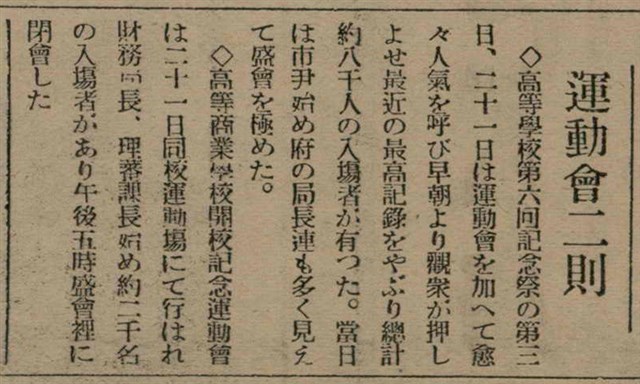 運動會二則
◇高等學校第六回記念祭の第三
日、二十一日は運動會を加へて愈
々人氣を呼び早朝より觀衆が押し
よせ最近の最高記錄をやぶり總計
約八千人の入場者が有つた。當日
は市尹始め府の局長連も多く見え
て盛會を極めた。
◇高等商業學校開校記念運動會
は二十一日同校運動場にて行はれ
財務局長、理蕃課長始め約二千名
の入場者があり午後五時盛會裡に
閉會した